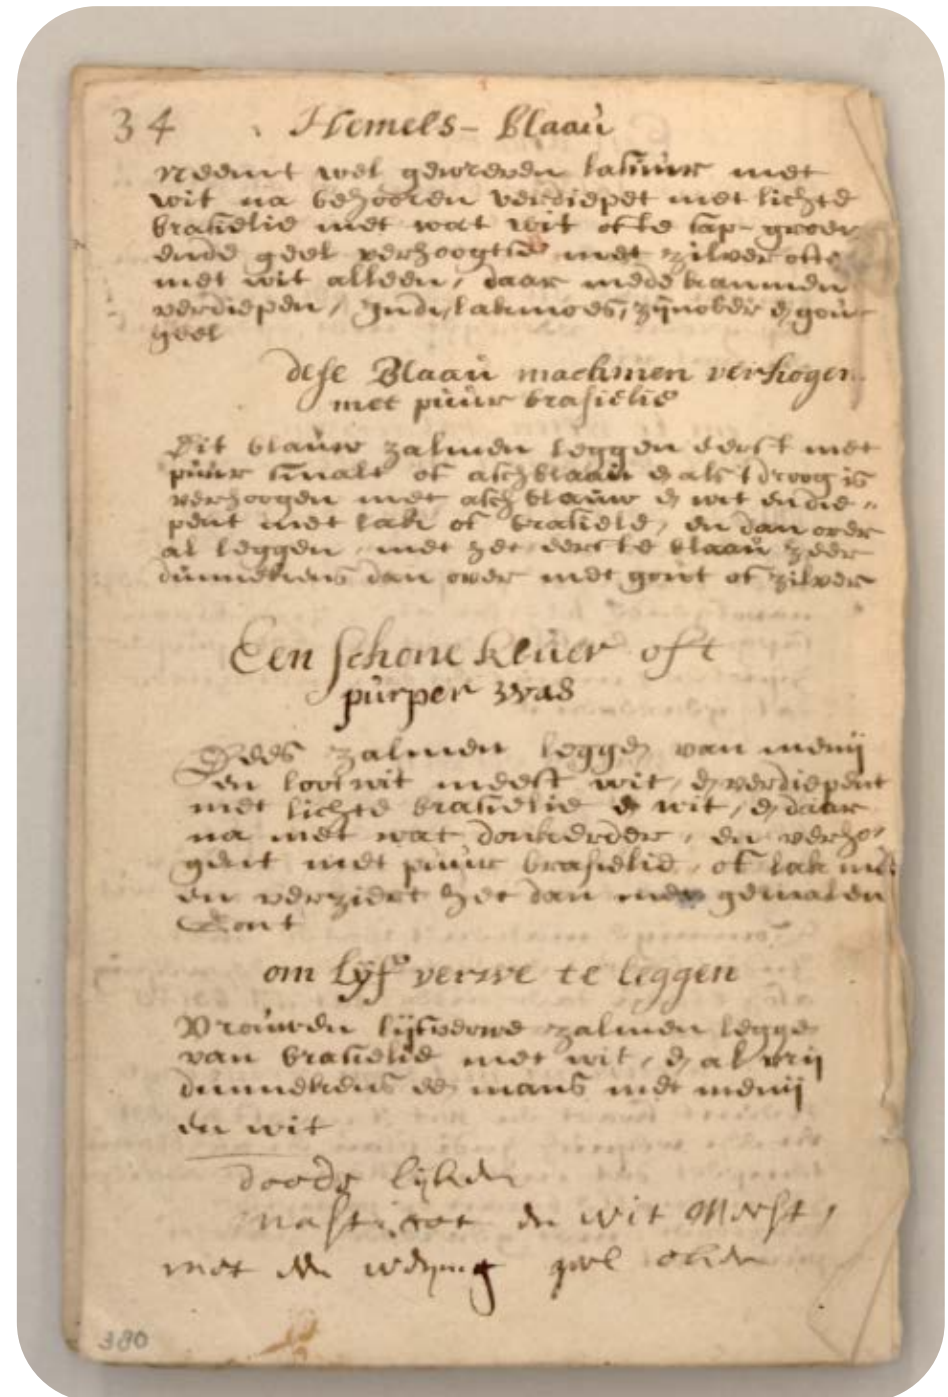 34 Hemels- blaaú
Neemt wel gewreven lasuur met
wit na behooren verdiepet met lichte
brasielie met wat wit ofte sap-groen
ende geel verhoogtse met zilver ofte
met wit alleen, daar mede kanmen
verdiepen, Indi, lakmoes, zÿnober en gout
geel
dese Blaaú machmen verhogen
met púúr brasielie
Dit blauw zalmen leggen eerst met
púúr smalt of aschblaaú en als t droog is
verhoogen met asch blaúw en wit en die-
pent met lak of brasiele, en dan over
al leggen, met het eerste blaaú zeer
dúnnekens dan over met gout of zilver
Een schone kleúer oft
púrper was
Dees zalmen leggen van menij
en lootwit meest wit, en verdiepent
met lichte brasielie en wit, en daar
na met wat donkerder, en verho-
gent met púúr brasielie, of lak
en verziert het dan met gemalen
Gout
om lÿf verwe te leggen
Vrouwen lijfverwe zalmen legge
van brasielie met wit, en al vrij
dunnekens een mans met menij
en wit
doode lijken
masticot en wit Meest,
met een weynig
380